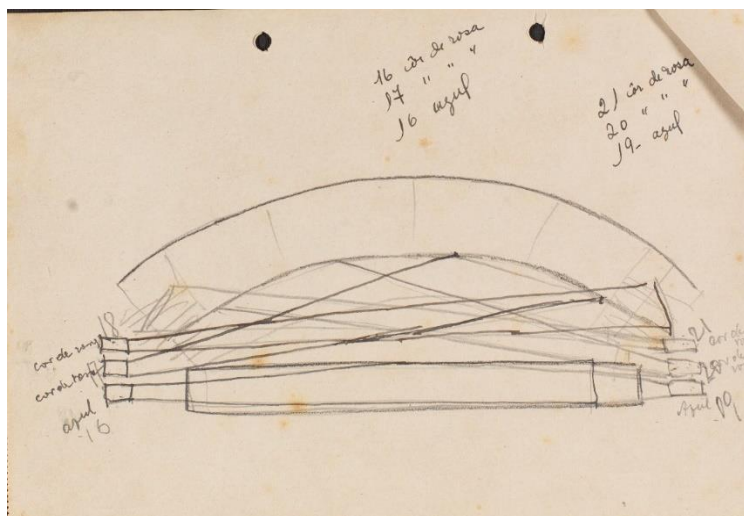 16 côr de rosa
17 " " "
16 azul
21 côr de rosa
20 " " "
19- azul
18
cor de rosa
17
cor de rosa
azul
16
21
cor de
20
cor de
Azul
19